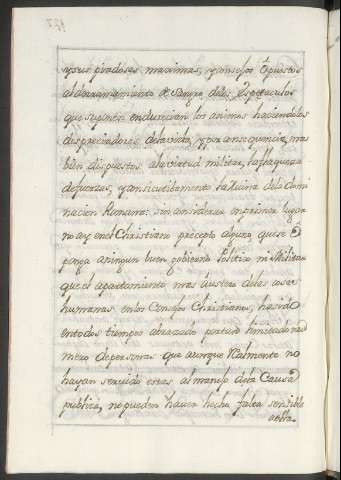 y sus piadosas maximas, y consejos opuestos
al derramamiento de Sangre, delos Espectaculos
que seguían endurecían los animos haciendolos
despreciadores dela vida, y por consequencia, mas
bien dispuestos ala virtud militar, la flaqueza
de fuerzas, y consicutibamente la Ruina dela Domi
nacion Romana: sin considerar en primer lugar
no ay enel Christiano precepto alguno, que se o
ponga aningun buen gobierno Politico ni Militar
que el apartamiento mas austero delas cosas
humanas enlos Consejos Christianos, ha sido
entodos tiempos abrazado por tan limitado nu
mero de personas que aunque Realmente no
hayan servido estas al manejo dela Causa
publica, no pueden haver hecho falta sensible
a esta.